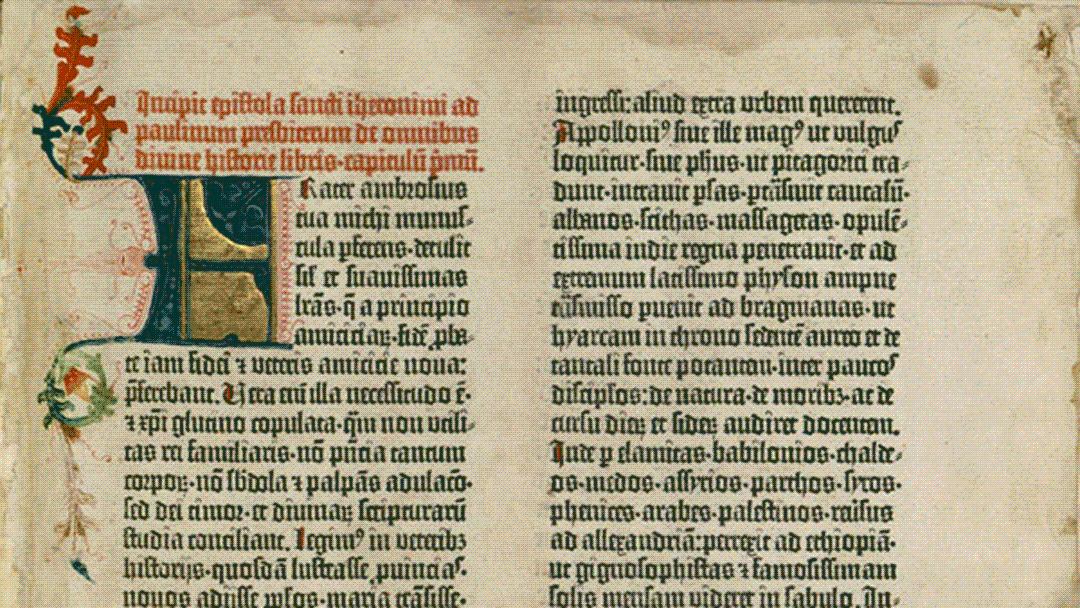 Incipit epistola sancti iheronimi ad
paulinum presbiterum de omnibus
divine historie libris·capitulū p̄mū.
Frater ambrosius
tua michi munus-
cula pferens·detulit
sil et suavissimas
lrās·q̄ a principio
amiciciaꝝ·fidē pba-
te iam fidei ⁊ veteris amicicie nova:
pferebant. Vera eni illa necessitudo ē·
⁊ xpi glutino copulata·q̄m non utili-
tas rei familiaris·nō pn̄cia tantum
corpoꝝ·nō sbdola ⁊ palpās adulacō·
sed dei timor·et divinaꝝ scripturarū
studia conciliant. Legimꝰ in veteribꝫ
historijs·quosdā lustrasse puinciaſ·
novos adijsse pplos·maria trāsisse·
ingressi: aliud extra urbem quererent.
Appolloniꝰ sive ille magꝰ ut vulguſ
loquitur·sive phus·ut pitagorici tra-
dunt·intravit psas·ptrāsivit caucasū·
albanos·scithas·massagetas·opulē-
tissima indie regna penetravit·et ad
extremum latissimo physon ampne
trāsmisso puenit ad bragmanas·ut
hyarcam in throno sedente aureo et de
tantali fonte potantem·inter paucoſ
discipulos: de natura·de moribꝫ·ac de
cursu dieꝝ et sideꝝ audiret docentem.
Inde p elamitas·babilonios·chalde-
os·medos·assyrios·parthos·syros·
phenices·arabes·palestinos·reversus
ad allexandriā: perrexit ad ethiopiā·
ut gignosophistas ⁊ famosissimam
solis mensam videret in sabulo. In-